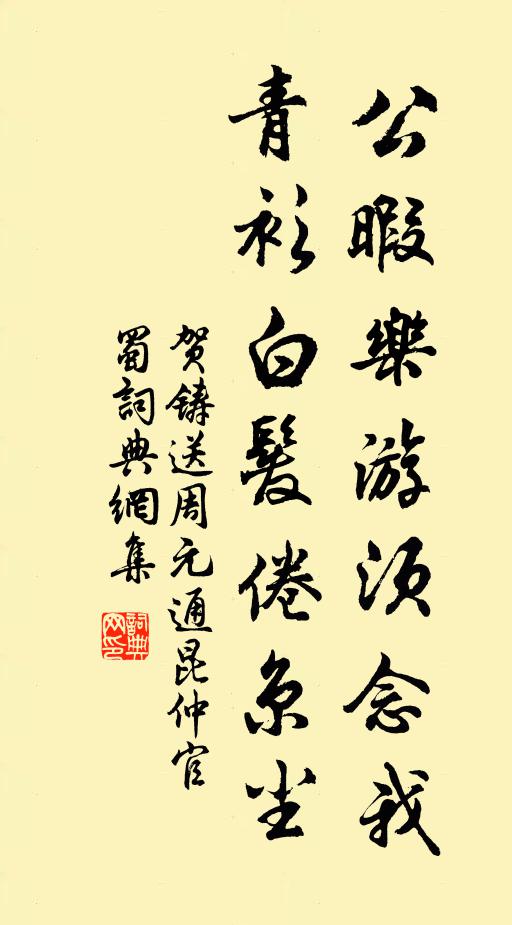 公暇樂游須念我
青衫白髮倦京塵
賀鑄送周元通昆仲官
蜀詞典網集
詞典
网印